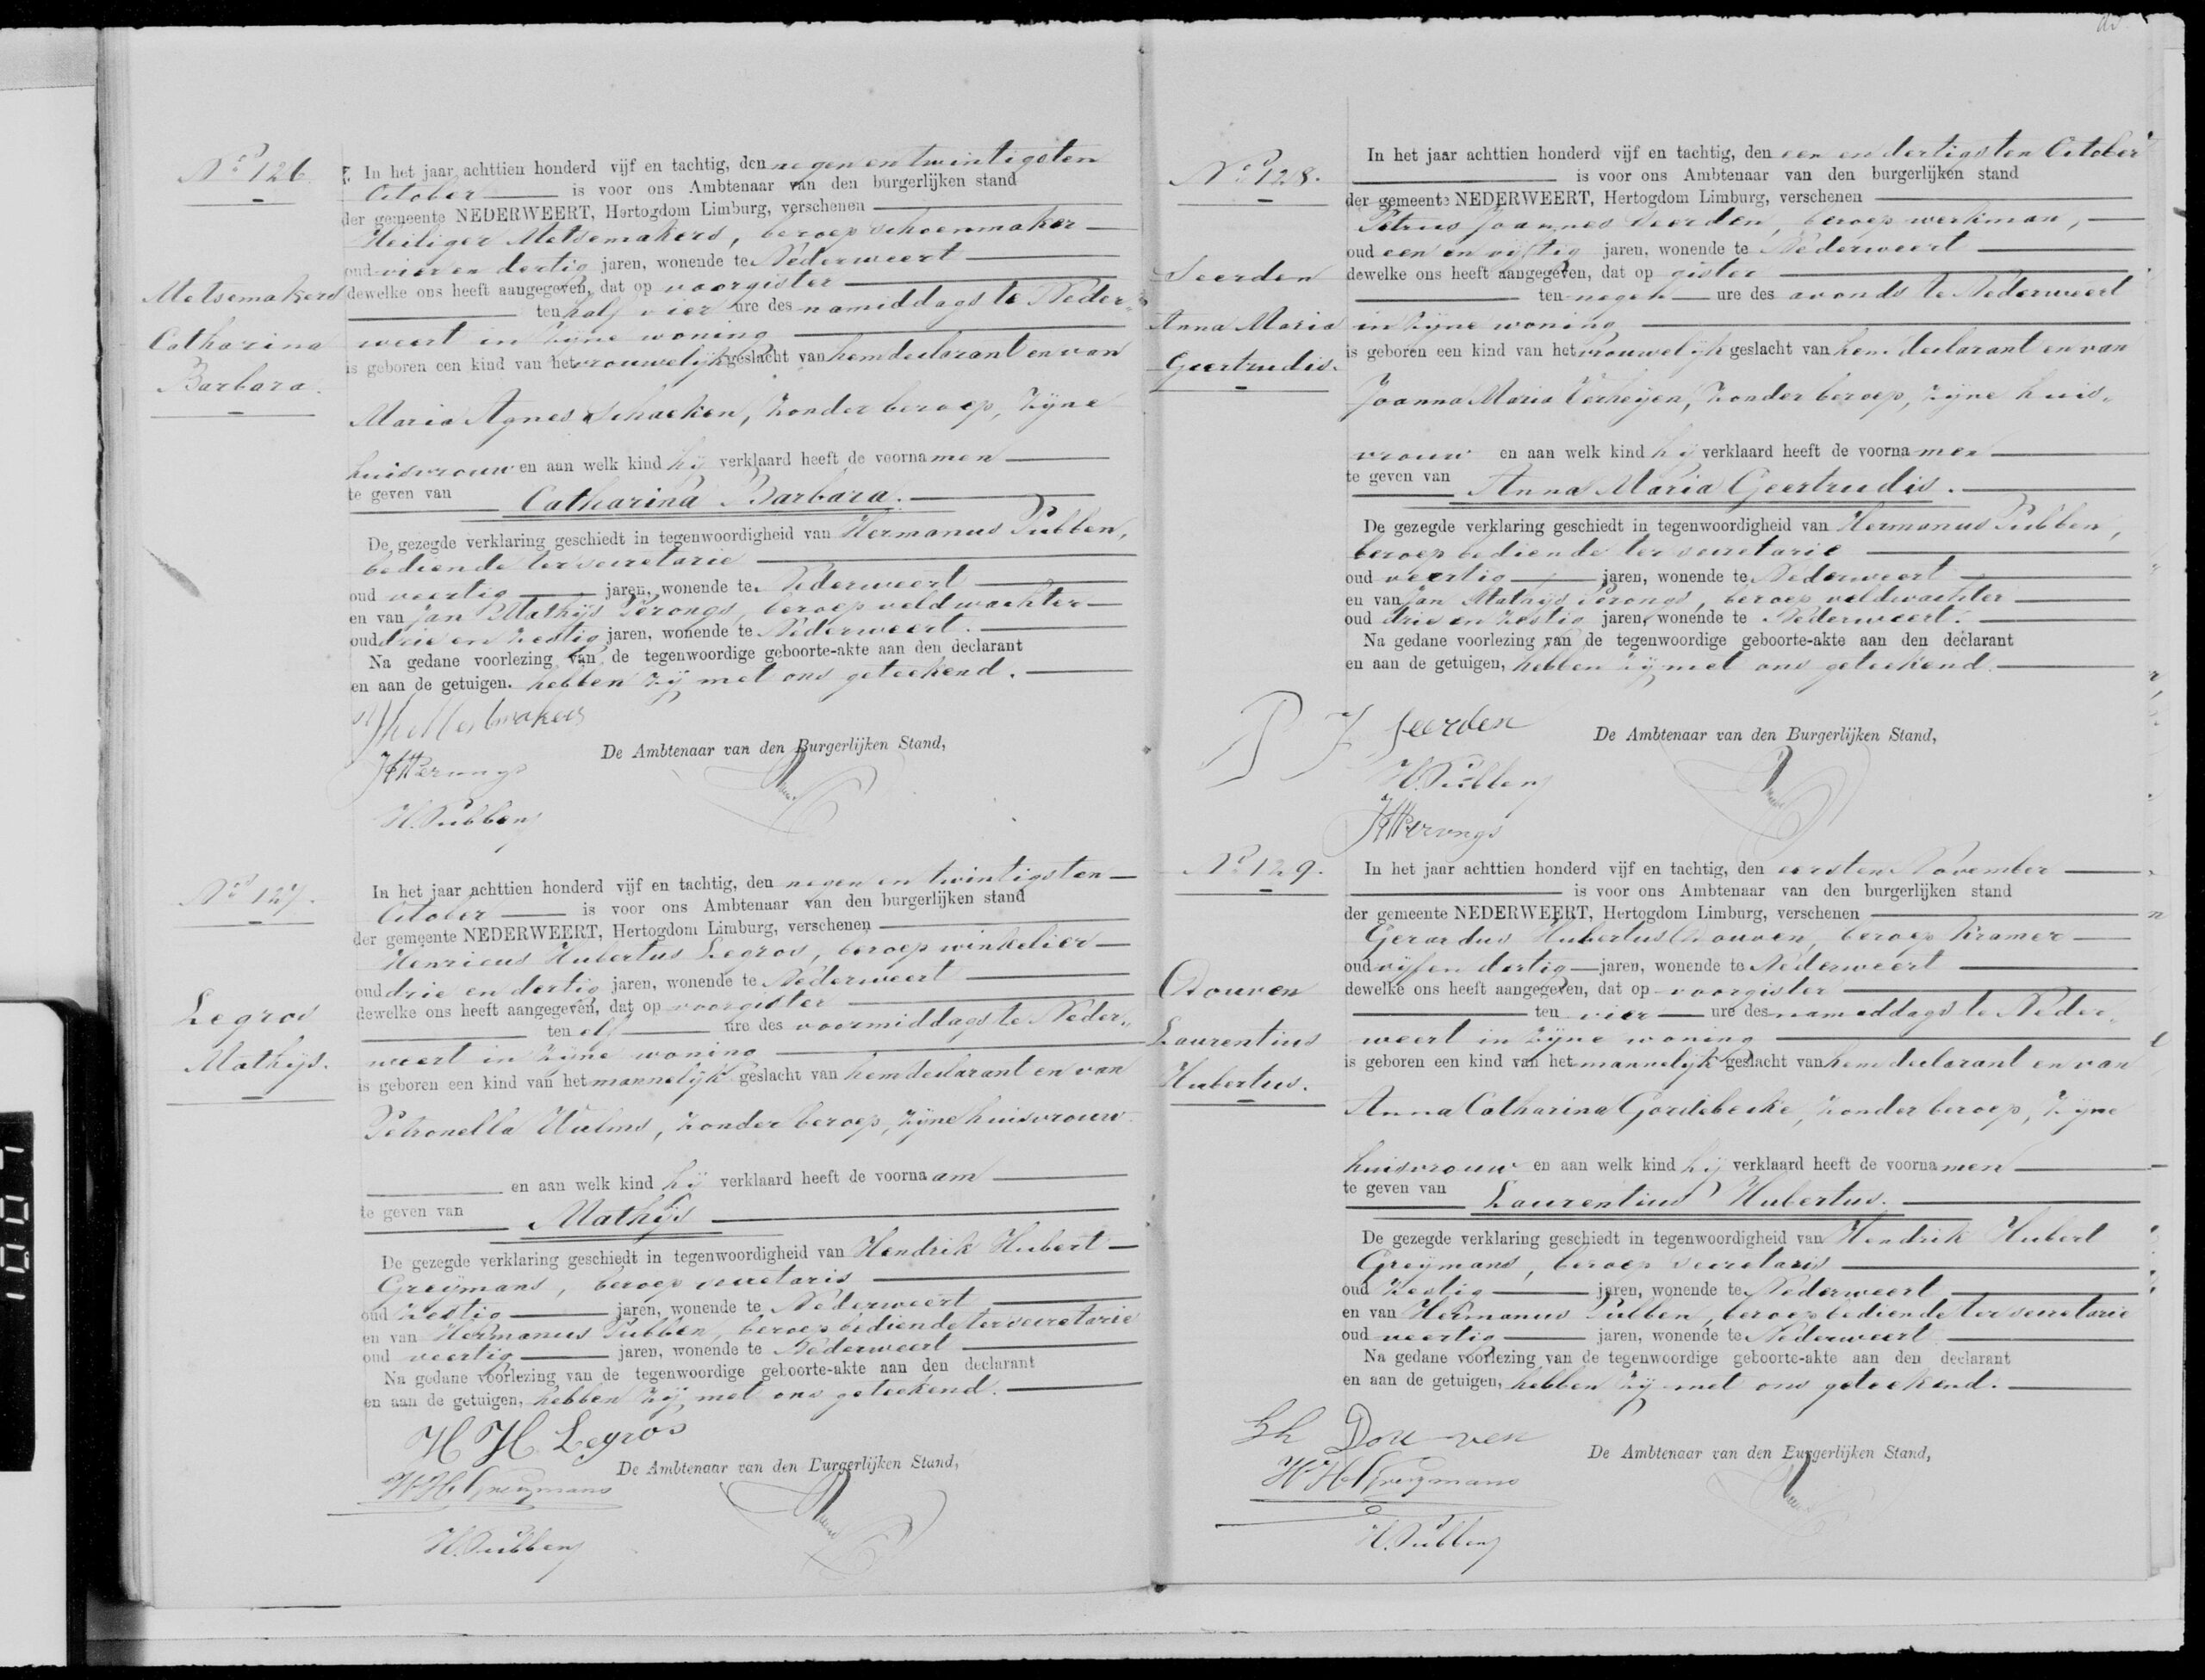 No 126
In het jaar achttien honderd vijf en tachtig, den negen en twintigsten
October is voor ons Ambtenaar van den burgerlijken stand
der gemeente NEDERWEERT, Hertogdom Limburg, verschenen
Heiliger Metsemakers, beroep schoenmaker
oud vier en dertig jaren, wonende te Nederweert
Metsemakers
dewelke ons heeft aangegeven, dat op voorgister
ten half vier ure des namiddags te Neder-
Catharina
weert in zijne woning
is geboren een kind van het vrouwelijk geslacht van hem declarant en van
Barbara.
Maria Agnes Schaeken, zonder beroep, zijne
huisvrouw en aan welk kind hij verklaard heeft de voornamen
te geven van Catharina Barbara.
De gezegde verklaring geschiedt in tegenwoordigheid van Hermanus Pubben,
bediende ter secretarie
oud veertig jaren, wonende te Nederweert
en van Jan Mathijs Perongs, beroep veldwachter
oud drie en zestig jaren, wonende te Nederweert.
Na gedane voorlezing van de tegenwoordige geboorte-akte aan den declarant
en aan de getuigen. hebben zij met ons geteekend.
De Ambtenaar van den Burgerlijken Stand,
JMPerongs
H. Pubben
No 127.
In het jaar achttien honderd vijf en tachtig, den negen en twintigsten
October is voor ons Ambtenaar van den burgerlijken stand
der gemeente NEDERWEERT, Hertogdom Limburg, verschenen
Henricus Hubertus Legros, beroep winkelier
oud drie en dertig jaren, wonende te Nederweert
Legros
dewelke ons heeft aangegeven, dat op voorgister
ten elf ure des voormiddags te Neder-
Mathijs.
weert in zijne woning
is geboren een kind van het mannelijk geslacht van hem declarant en van
Petronella Wulms, zonder beroep, zijne huisvrouw
en aan welk kind hij verklaard heeft de voornaam
te geven van Mathijs
De gezegde verklaring geschiedt in tegenwoordigheid van Hendrik Hubert
Greijmans, beroep secretaris
oud zestig jaren, wonende te Nederweert
en van Hermanus Pubben, beroep bediende ter secretarie
oud veertig jaren, wonende te Nederweert
Na gedane voorlezing van de tegenwoordige geboorte-akte aan den declarant
en aan de getuigen, hebben zij met ons geteekend.
H H Legros
De Ambtenaar van den Burgerlijken Stand,
HHGreijmans
H. Pubben
No 128.
In het jaar achttien honderd vijf en tachtig, den een en dertigsten October
is voor ons Ambtenaar van den burgerlijken stand
der gemeente NEDERWEERT, Hertogdom Limburg, verschenen
Petrus Joannes Seerden, beroep werkman,
oud een en vijftig jaren, wonende te Nederweert
Seerden
dewelke ons heeft aangegeven, dat op gister
ten negen ure des avonds te Nederweert
Anna Maria
in zijne woning
Geertrudis.
is geboren een kind van het vrouwelijk geslacht van hem declarant en van
Joanna Maria Verheijen, zonder beroep, zijne huis-
vrouw en aan welk kind hij verklaard heeft de voornamen
te geven van Anna Maria Geertrudis.
De gezegde verklaring geschiedt in tegenwoordigheid van Hermanus Pubben,
beroep bediende ter secretarie
oud veertig jaren, wonende te Nederweert
en van Jan Mathijs Perongs, beroep veldwachter
oud drie en zestig jaren, wonende te Nederweert.
Na gedane voorlezing van de tegenwoordige geboorte-akte aan den declarant
en aan de getuigen, hebben zij met ons geteekend.
P J Seerden
De Ambtenaar van den Burgerlijken Stand,
H. Pubben
JMPerongs
No 129.
In het jaar achttien honderd vijf en tachtig, den eersten November
is voor ons Ambtenaar van den burgerlijken stand
der gemeente NEDERWEERT, Hertogdom Limburg, verschenen
Gerardus Hubertus Douven, beroep kramer
oud vijf en dertig jaren, wonende te Nederweert
Douven
dewelke ons heeft aangegeven, dat op voorgister
ten vier ure des namiddags te Neder-
Laurentius
weert in zijne woning
is geboren een kind van het mannelijk geslacht van hem declarant en van
Hubertus.
Anna Catharina Gordebeeke, zonder beroep, zijne
huisvrouw en aan welk kind hij verklaard heeft de voornamen
te geven van Laurentius Hubertus.
De gezegde verklaring geschiedt in tegenwoordigheid van Hendrik Hubert
Greijmans, beroep secretaris
oud zestig jaren, wonende te Nederweert
en van Hermanus Pubben, beroep bediende ter secretarie
oud veertig jaren, wonende te Nederweert
Na gedane voorlezing van de tegenwoordige geboorte-akte aan den declarant
en aan de getuigen, hebben zij met ons geteekend.
Douven
De Ambtenaar van den Burgerlijken Stand,
HHGreijmans
H. Pubben